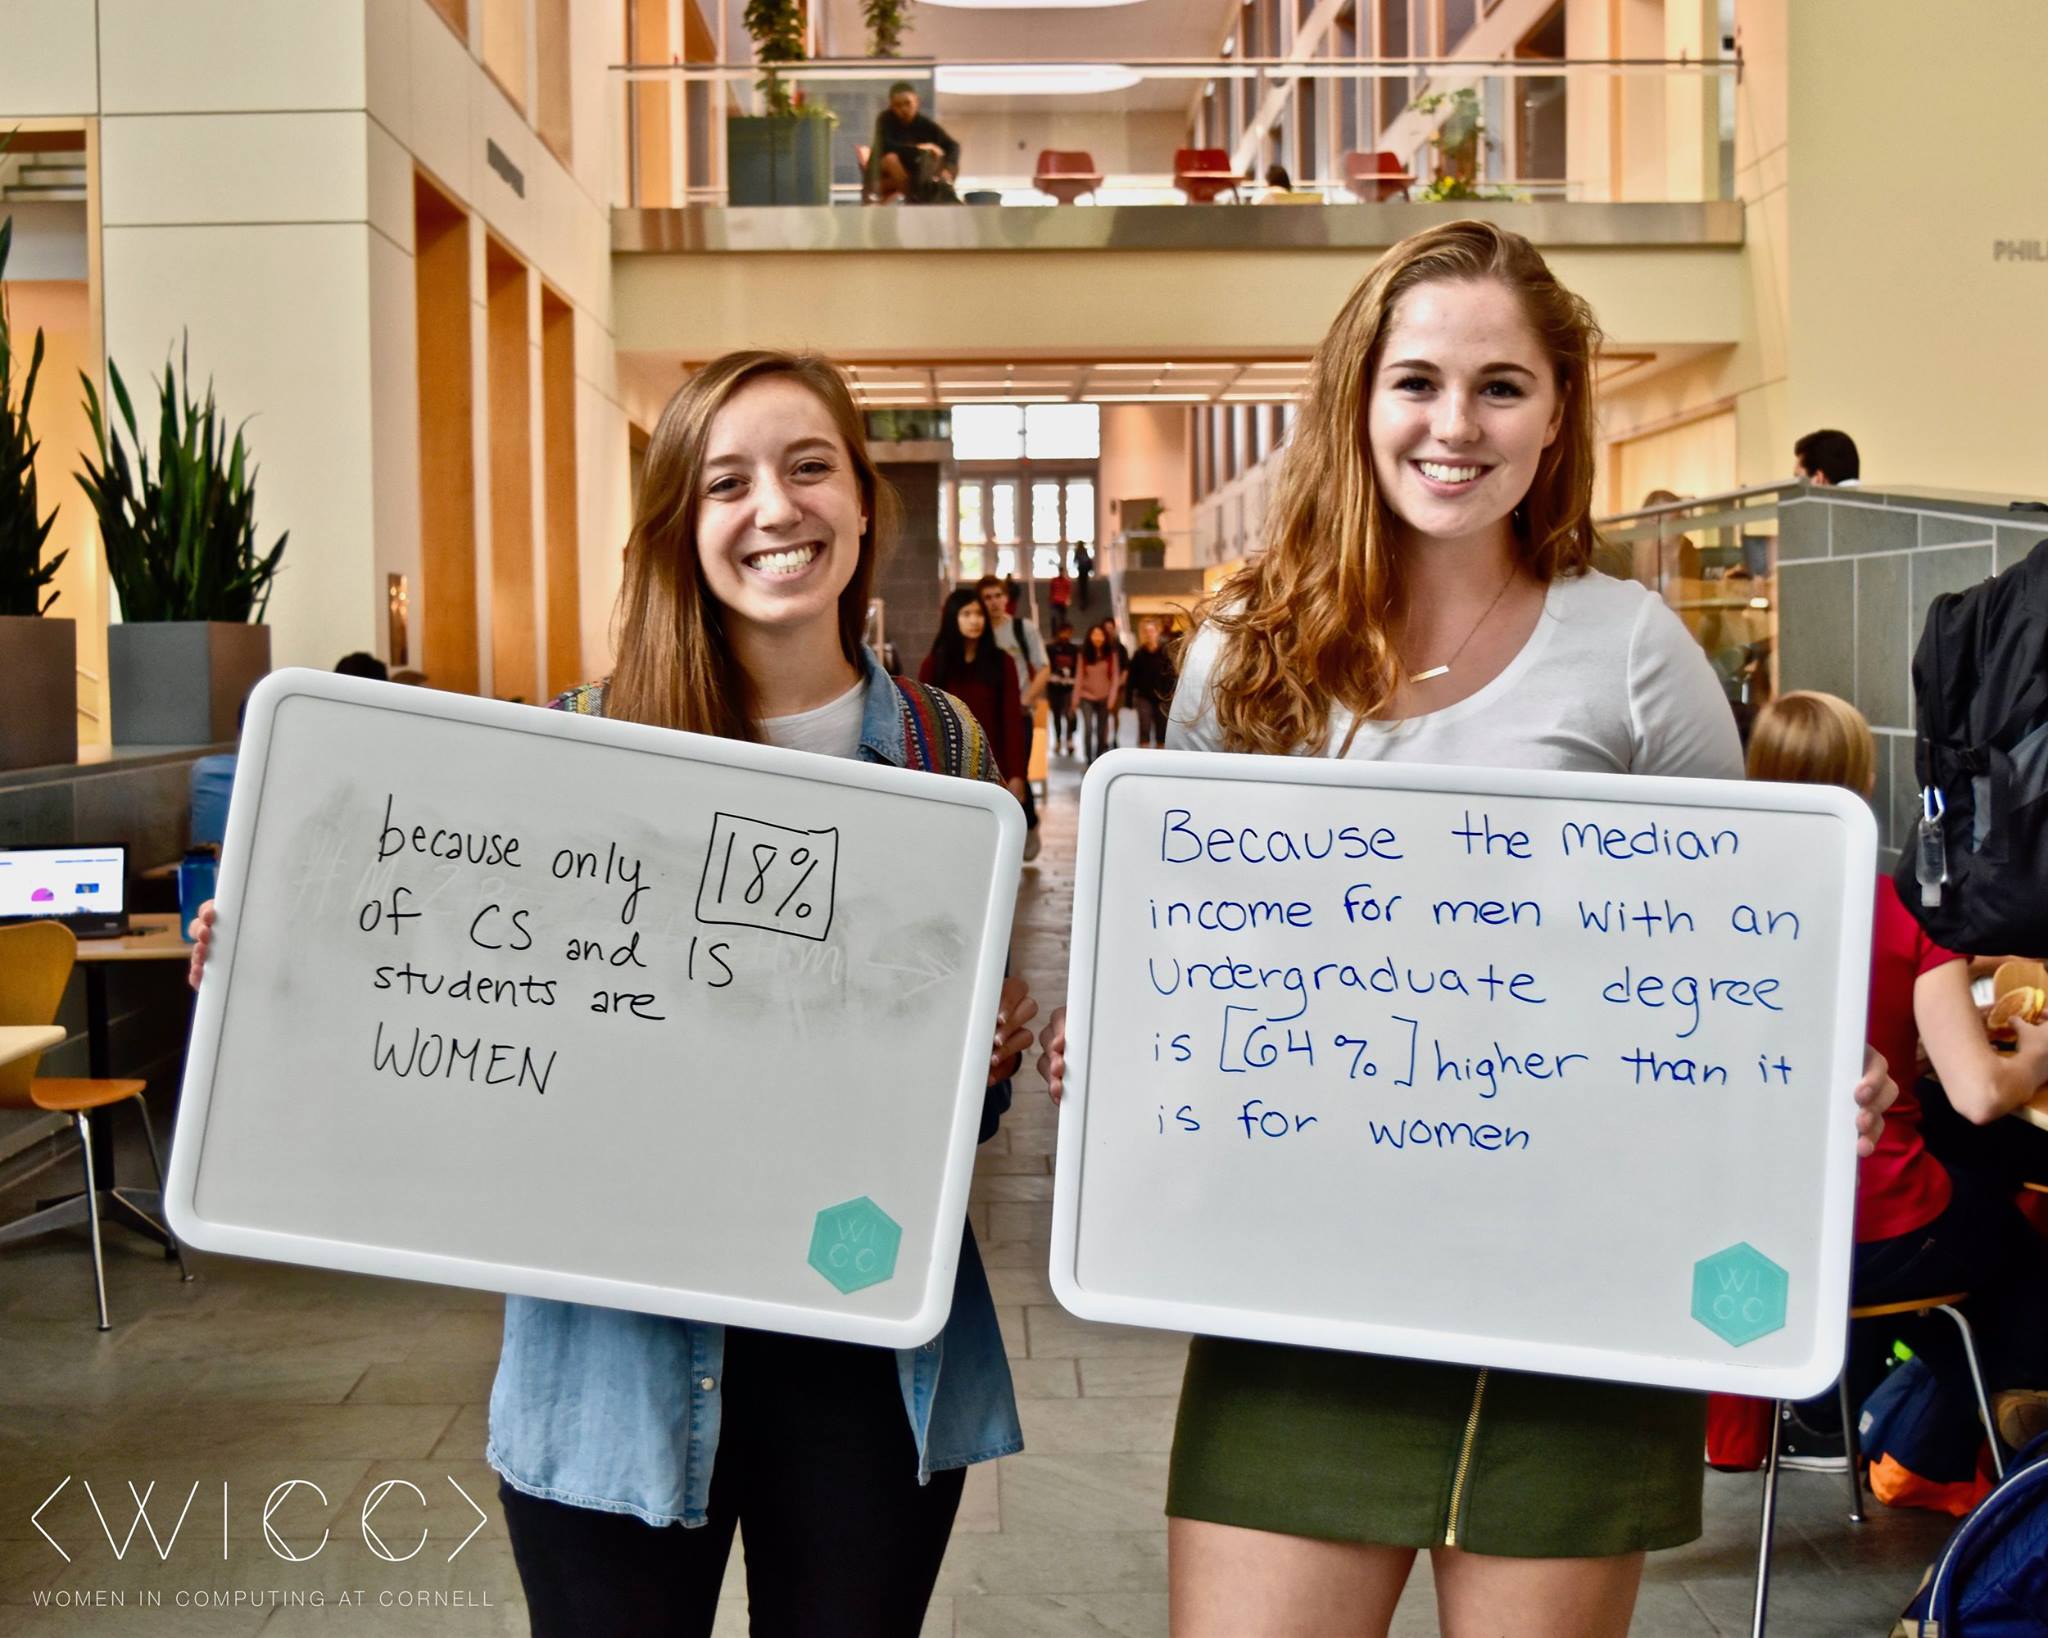 PHIL
because only 18%
of CS and IS
students are
WOMEN
WI
CC
Because the median
income for men with an
Undergraduate degree
is [64%] higher than it
is for women
WI
CC
<WICC>
WOMEN IN COMPUTING AT CORNELL